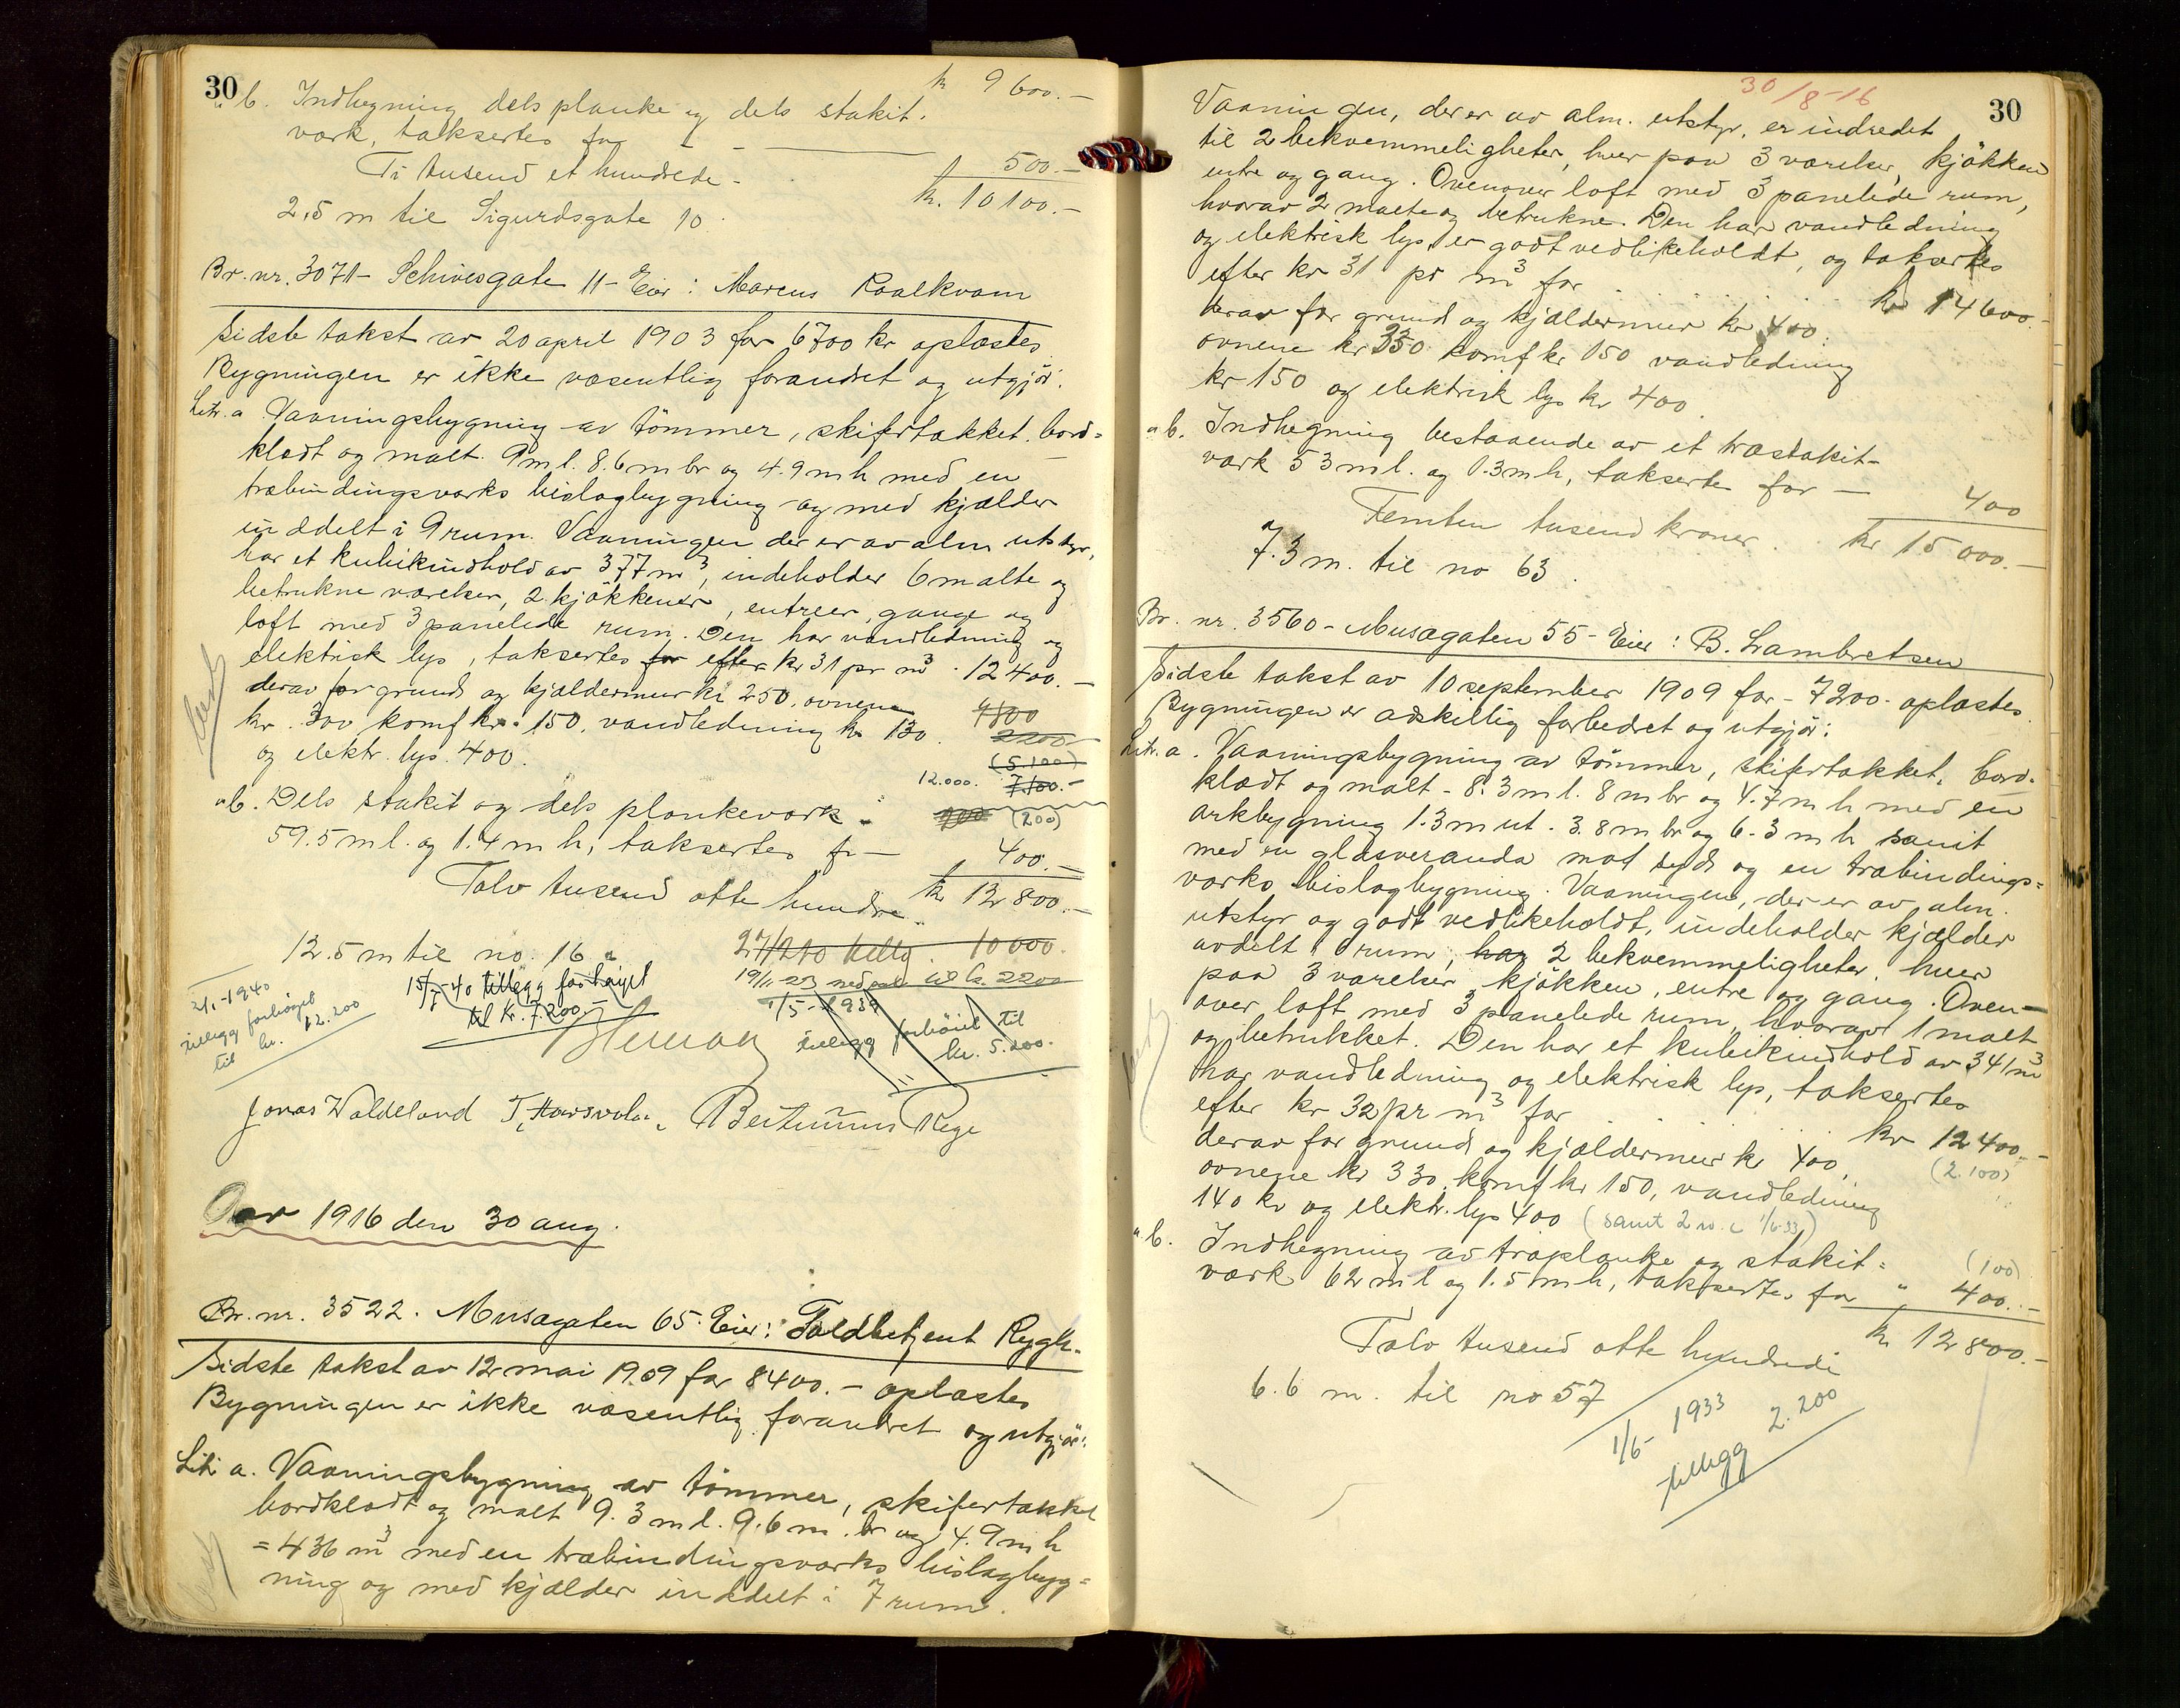 30
kr 9600.-
" b. Indhegning dels planke og dels stakit.
værk, taksertes for - - 500.-
Ti tusend et hundrede - kr. 10100.-
2,5 m til Sigurdsgate 10.
Br. nr. 3071 - Schivesgate 11 - Eier: Marcus Raalkvam
Sidste takst av 20 april 1903 for 6700 kr oplæstes
Bygningen er ikke væsentlig forandret og utgjør:
Litr. a. Vaaningsbygning av tömmer, skifertækket, bord=
klædt og malt. 9 m l. 8.6 m br og 4.9 m h med en
træbindingsværks bislagbygning og med kjælder
inddelt i 9 rum. Vaaningen der er av alm utstyr,
har et kubikindhold av 377 m3, indeholder 6 malte og
betrukne værelser, 2 kjøkkener, entreer, gange og
loft med 3 panelede rum. Den har vandledning og
elektrisk lys, taksertes for efter kr 31 pr m3 . 12400.-
derav for grund og kjældermur kr 250, ovnene 4800
kr. 300 komf kr. 150, vandledning kr 130. 2200
og elektr. lys. 400. (5.100)
12.000. 7100.-
" b. Dels stakit og dels plankeværk 900 (200)
59.5 m l. og 1.4 m h, taksertes for - 400.-
Tolv tusend otte hundre kr. 12800.-
12.5 m til no. 16 a
27/1 20 tillg. 10000.
19/1-23 nedsat til kr. 2200
2/1-1940
tillegg forhöiet
til kr. 12.200
15/7-40 tillegg forhøyet
til kr. 7200.-
1/5-1939
tillegg forhöiet til
kr. 5.200.
Jonas Waldeland Bertinius Rege
Aar 1916 den 30 aug.
Br. nr. 3522. Musægaten 65. Eier: Toldbetjent Rygh.
Sidste takst av 12 mai 1909 for 8400.- oplæstes
Bygningen er ikke væsentlig forandret og utgjør:
Litr a. Vaaningsbygning av tömmer, skifertækket
bordklædt og malt 9.3 m l. 9.6 m. br og 4.9 m h
= 436 m3 med en træbindingsværks bislagbyg=
ning og med kjælder inddelt i 7 rum.
30/8-16
30
Vaaningen, der er av alm. utstyr, er indredet
til 2 bekvemmeligheter, hver paa 3 værelser, kjökken
entre og gang. Ovenover loft med 3 panelede rum,
hvorav 2 malte og betrukne. Den har vandledning
og elektrisk lys, er godt vedlikeholdt, og taksertes
efter kr 31 pr m3 for . . . . . kr 14600.-
derav for grund og kjældermur kr 400.
ovnene kr 350 komf kr 150 vandledning
kr 150 og elektrisk lys kr 400.
" b. Indhegning bestaaende av et træstakit-
værk 53 m l. og 1.3 m h, taksertes for - 400
Femten tusend kroner . . kr 15000.-
7.3 m. til no 63.
Br. nr. 3560 - Musægaten 55 - Eier: B. Lambretsen
Sidste takst av 10 september 1909 for - 7200 - oplæstes.
Bygningen er adskillig forbedret og utgjör:
Litr. a. Vaaningsbygning av tömmer, skifertækket, bord-
klædt og malt - 8.3 m l. 8 m br og 4.7 m h med en
arkbygning 1.3 m ut. 3.8 m br og 6.3 m h samt
med en glasveranda mot syd og en træbindings=
værks bislagbygning. Vaaningen, der er av alm.
utstyr og godt vedlikeholdt, indeholder kjælder
avdelt i rum, har 2 bekvemmeligheter, hver
paa 3 værelser, kjøkken, entre og gang. Oven-
over loft med 3 panelede rum, hvorav 1 malt
og betrukket. Den har et kubikindhold av 341 m3
har vandledning og elektrisk lys, taksertes
efter kr 32 pr m3 for . . . . kr 12400.-
derav for grund og kjældermur kr 400, (2.100)
ovnene kr 330, komf kr 150, vandledning
140 kr og elektr. lys 400 (samt 2 w.c 1/6-33)
" b. Indhegning av træplanke og stakit= (100)
værk 62 m l og 1.5 m h, taksertes for " 400.-
Tolv tusend otte hundrede kr 12800.-
6.6 m. til no 57
1/6- 1933
tillegg 2.200